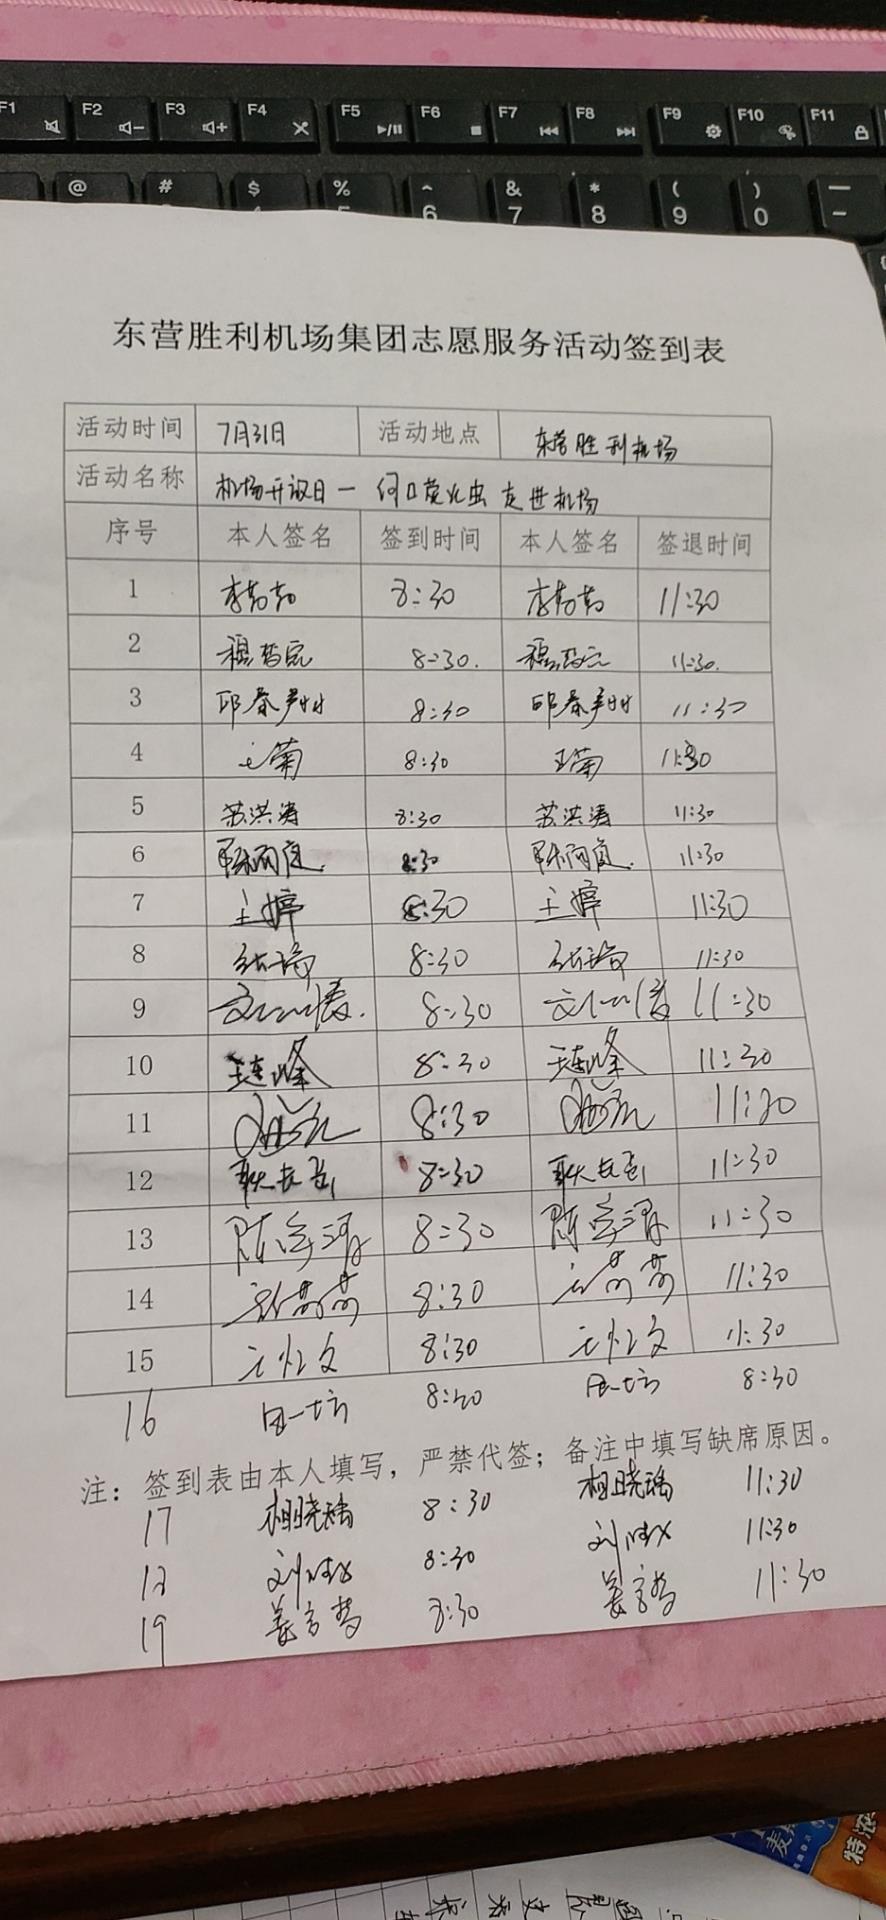 F1 F2 F3 F4 F5 F6 F7 F8 F9 F10 F11
@ # $ % ^ & * ( ) —
6 7 8 9 0 -
东营胜利机场集团志愿服务活动签到表
活动时间 7月31日 活动地点 东营胜利机场
活动名称 机场开放日一 河口萤火虫走进机场
序号 本人签名 签到时间 本人签名 签退时间
1 李茹茹 8:30 李茹茹 11:30
2 8:30. 11:30.
3 邱春 8:30 邱春 11:30
4 王菊 8:30 王菊 11:30
5 苏洪涛 8:30 苏洪涛 11:30
6 陈雨庭 8:30 陈雨庭 11:30
7 王婷 8:30 王婷 11:30
8 8:30 11:30
9 8:30 11:30
10 王连峰 8:30 王连峰 11:30
11 8:30 11:30
12 8:30 11:30
13 陈 8:30 陈 11:30
14 8:30 11:30
15 8:30 11:30
16 8:30 8:30
注：签到表由本人填写，严禁代签；备注中填写缺席原因。
17 相晓瑀 8:30 相晓瑀 11:30
18 刘 8:30 刘 11:30
19 姜言梦 8:30 姜言梦 11:30
特浓